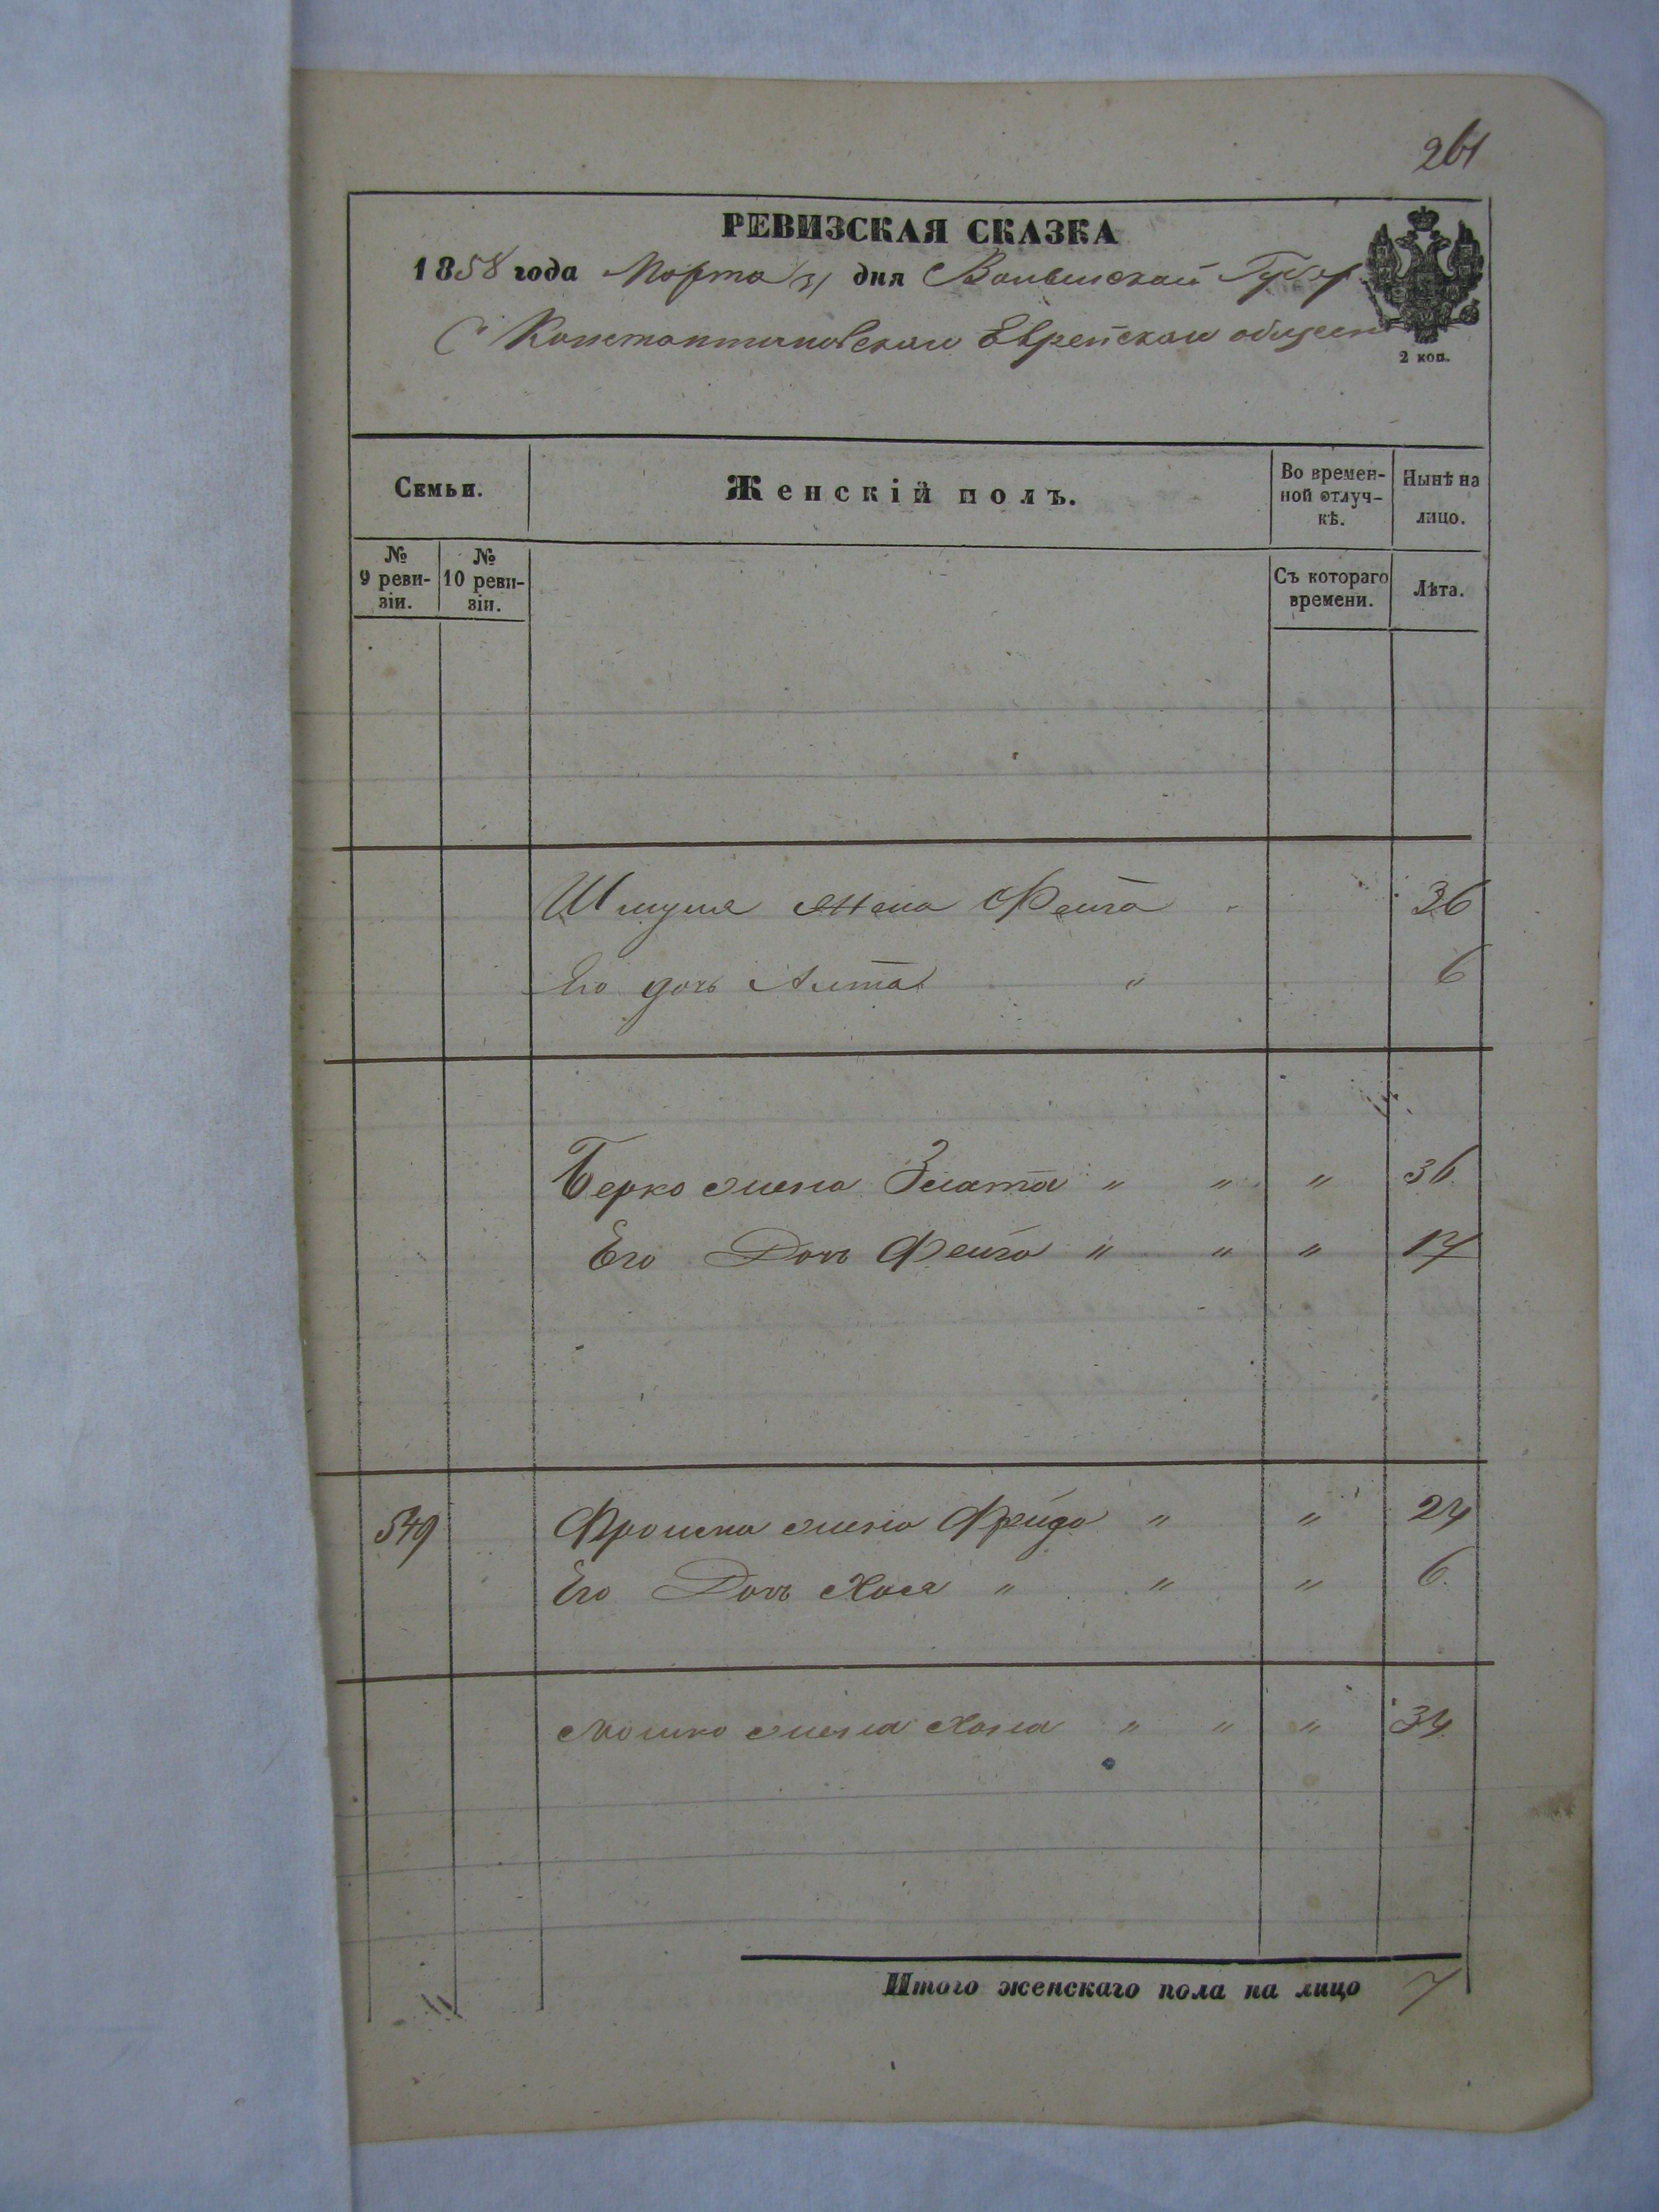 261
РЕВИЗСКАЯ СКАЗКА
1858 года Марта 31 дня Волынской Губер
С Константиновскаго Еврейскаго общест
2 коп.
Семьи.
Женскій полъ.
Во времен-
ной отлуч-
кѣ.
Нынѣ на
лицо.
№
9 реви-
зіи.
№
10 реви-
зіи.
Съ котораго
времени.
Лѣта.
Шмуля жена Фейга 36
Его дочь Алта " 6
Берко жена Злата " " " 36
Его Дочь Фейга " " " 17
549 жена Фрейда " " 24
Его Дочь Хася " " " 6
Мошко жена Хана " " " 34
Итого женскаго пола на лицо 7